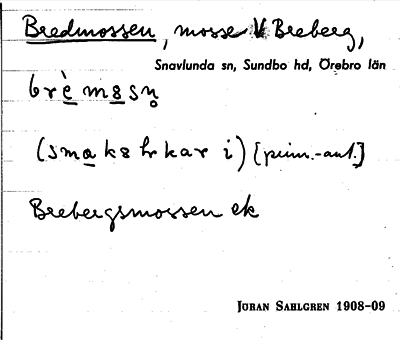 Bredmossen, mosse V Breberg,
Snavlunda sn, Sundbo hd, Örebro län
brè mssn̥
(smaks hrkar i) [prim.-ant.]
Brebergsmossen ek
JÖRAN SAHLGREN 1908-09